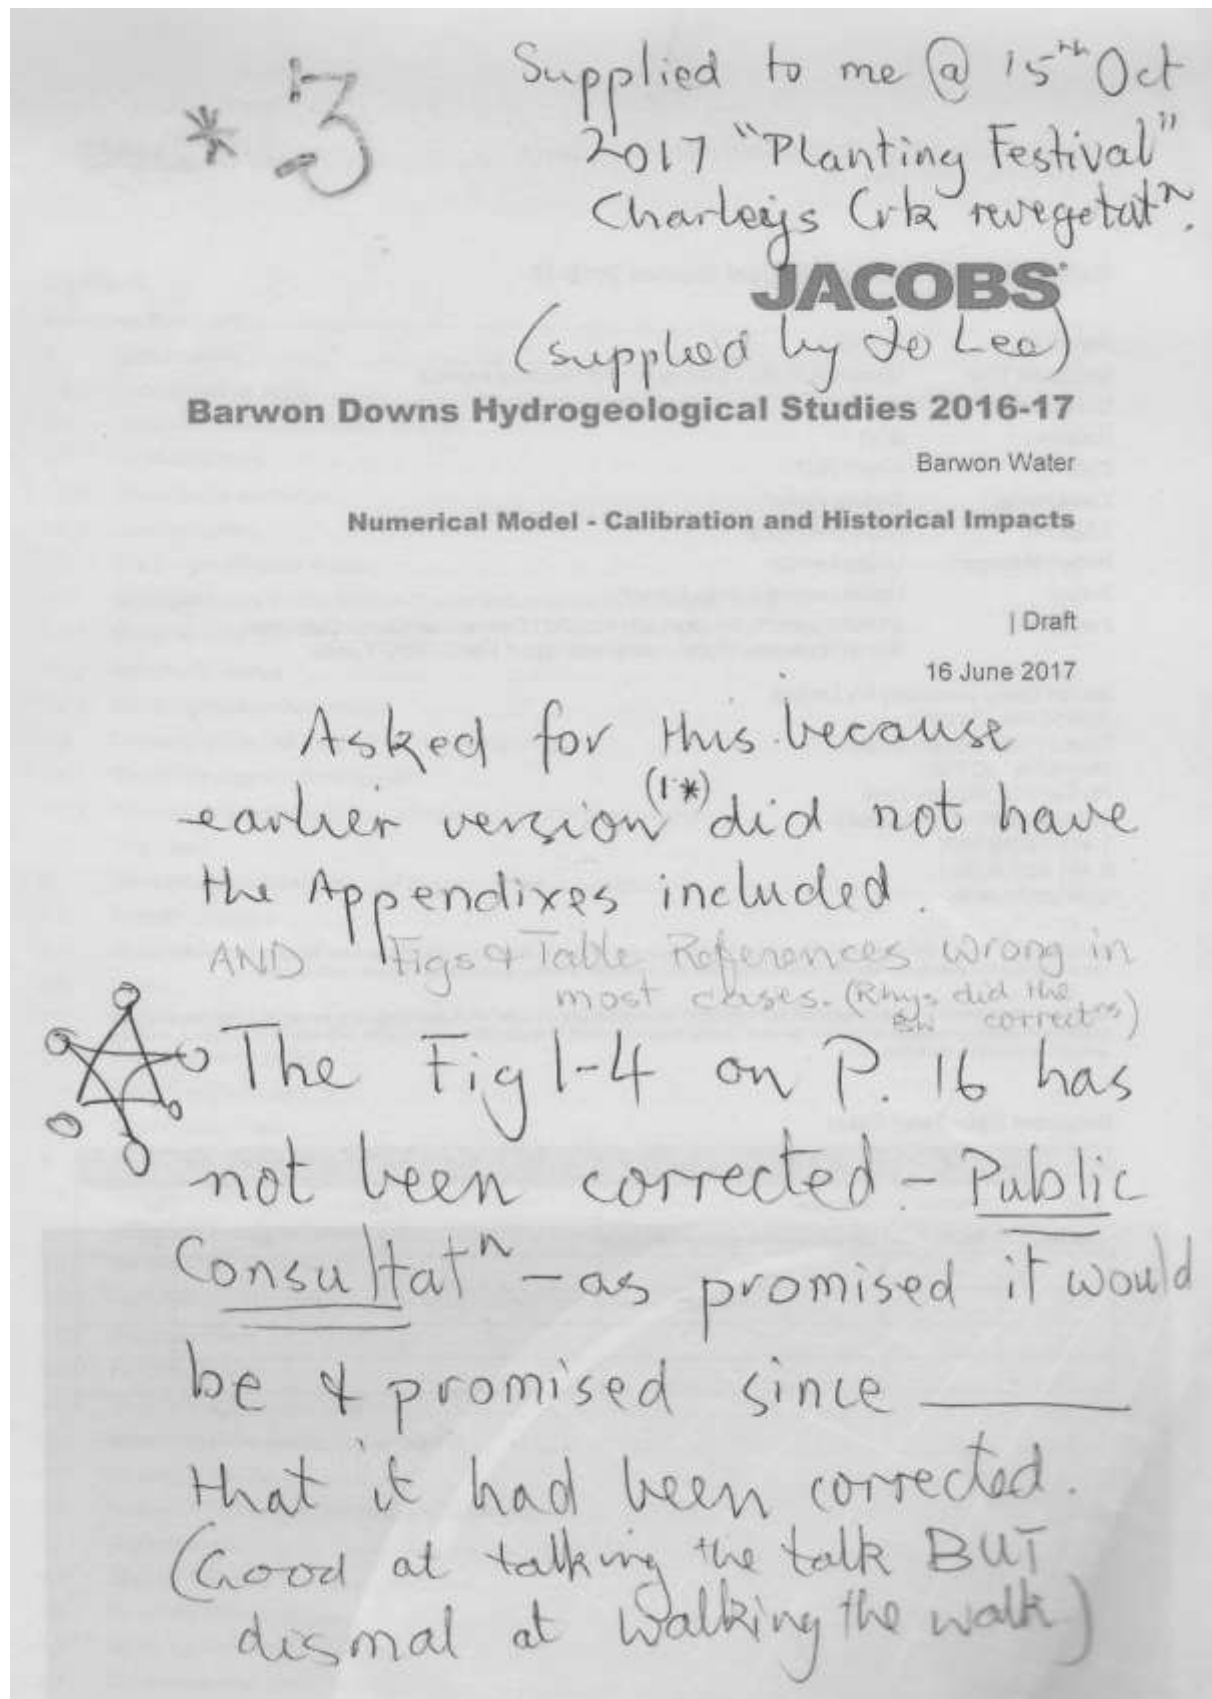 * 3
Supplied to me @ 15th Oct
2017 "Planting Festival"
Charleys Crk revegetatn.
JACOBS
(supplied by Jo Lee)
Barwon Downs Hydrogeological Studies 2016-17
Barwon Water
Numerical Model - Calibration and Historical Impacts
| Draft
16 June 2017
Asked for this because
earlier version (1*) did not have
the Appendixes included.
AND Figs & Table References wrong in
most cases. (Rhys did the
BW correctns)
The Fig 1-4 on P. 16 has
not been corrected - Public
Consultatn - as promised it would
be & promised since ______
that it had been corrected.
(Good at talking the talk BUT
dismal at walking the walk)